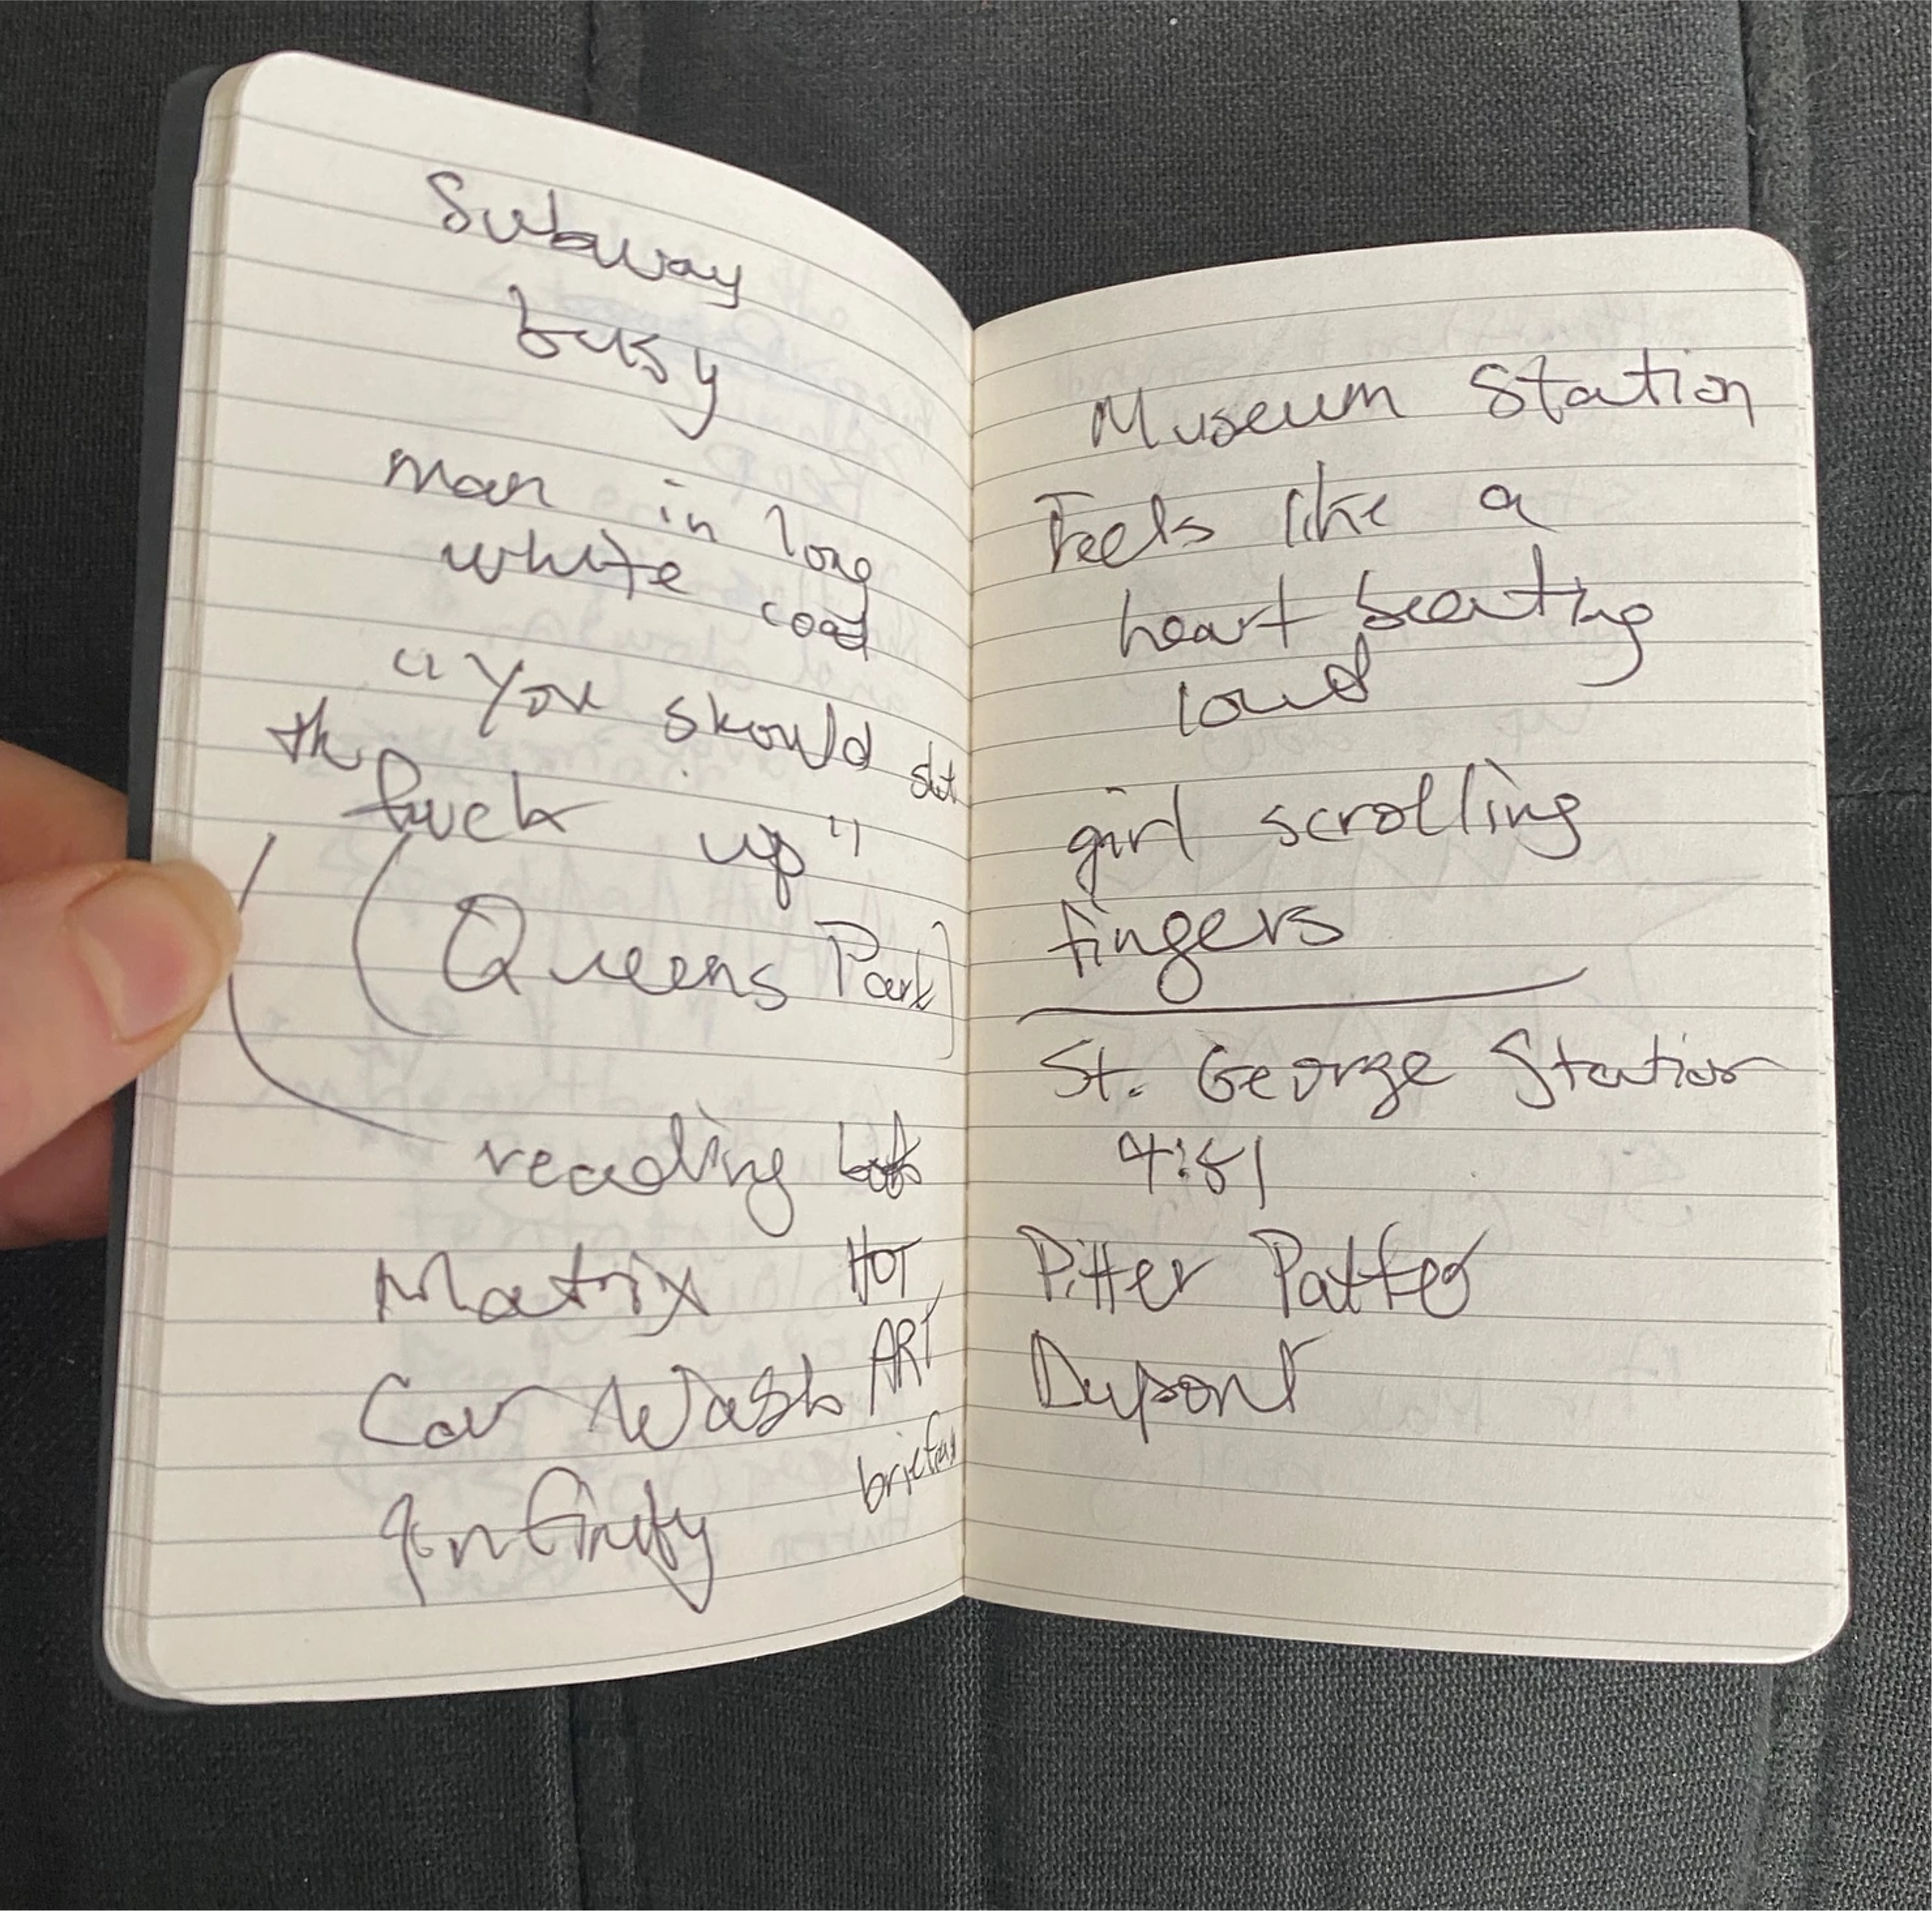 Subway
busy
man in long
white coat
"You should shut
the fuck up"
(Queens Park)
reading books
Matrix HOT
Car Wash ART
Infinity
Museum Station
Feels like a
heart beating
loud
girl scrolling
fingers
St. George Station
4:51
Pitter Patter
Dupont